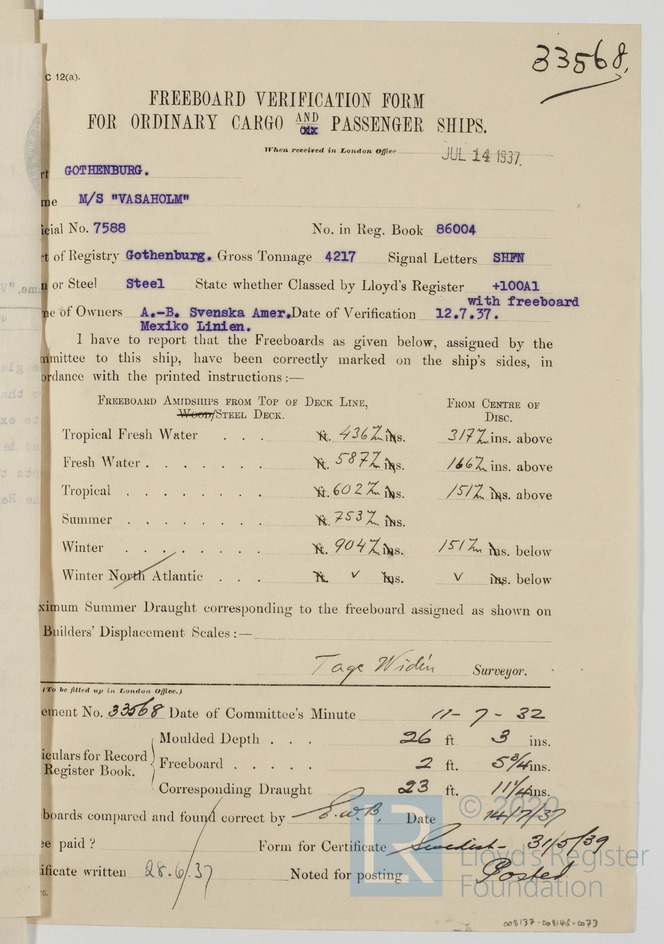 33568.
C 12(a).
FREEBOARD VERIFICATION FORM
FOR ORDINARY CARGO AND PASSENGER SHIPS.
When received in London Office JUL 14 1937
rt GOTHENBURG.
me M/S "VASAHOLM"
icial No. 7588 No. in Reg. Book 86004
t of Registry Gothenburg. Gross Tonnage 4217 Signal Letters SHFN
n or Steel Steel State whether Classed by Lloyd's Register +100A1
with freeboard
ne of Owners A.-B. Svenska Amer. Date of Verification 12.7.37.
Mexiko Linien.
I have to report that the Freeboards as given below, assigned by the
mmittee to this ship, have been correctly marked on the ship's sides, in
ordance with the printed instructions:—
FREEBOARD AMIDSHIPS FROM TOP OF DECK LINE, FROM CENTRE OF
WOOD/STEEL DECK. DISC.
Tropical Fresh Water . . . ft. 436 ins. 317 ins. above
Fresh Water . . . . . . ft. 587 ins. 166 ins. above
Tropical . . . . . . . ft. 602 ins. 151 ins. above
Summer . . . . . . . ft. 753 ins.
Winter . . . . . . . ft. 904 ins. 151 ins. below
Winter North Atlantic . . . ft. v ins. v ins. below
ximum Summer Draught corresponding to the freeboard assigned as shown on
Builders' Displacement Scales:—
Tage Widén Surveyor.
(To be filled up in London Office.)
ement No. 33568 Date of Committee's Minute 11-7-32
Moulded Depth . . . 26 ft 3 ins.
iculars for Record
Register Book.
Freeboard . . . . . 2 ft. 5 3/4 ins.
Corresponding Draught 23 ft. 11 1/4 ins.
boards compared and found correct by E.W.B. Date 14/7/37
ee paid ? Form for Certificate Swedish - 31/5/39
ificate written 28.6/37 Noted for posting Posted
LR
© 2020
Lloyd's Register
Foundation
008137-008145-0073